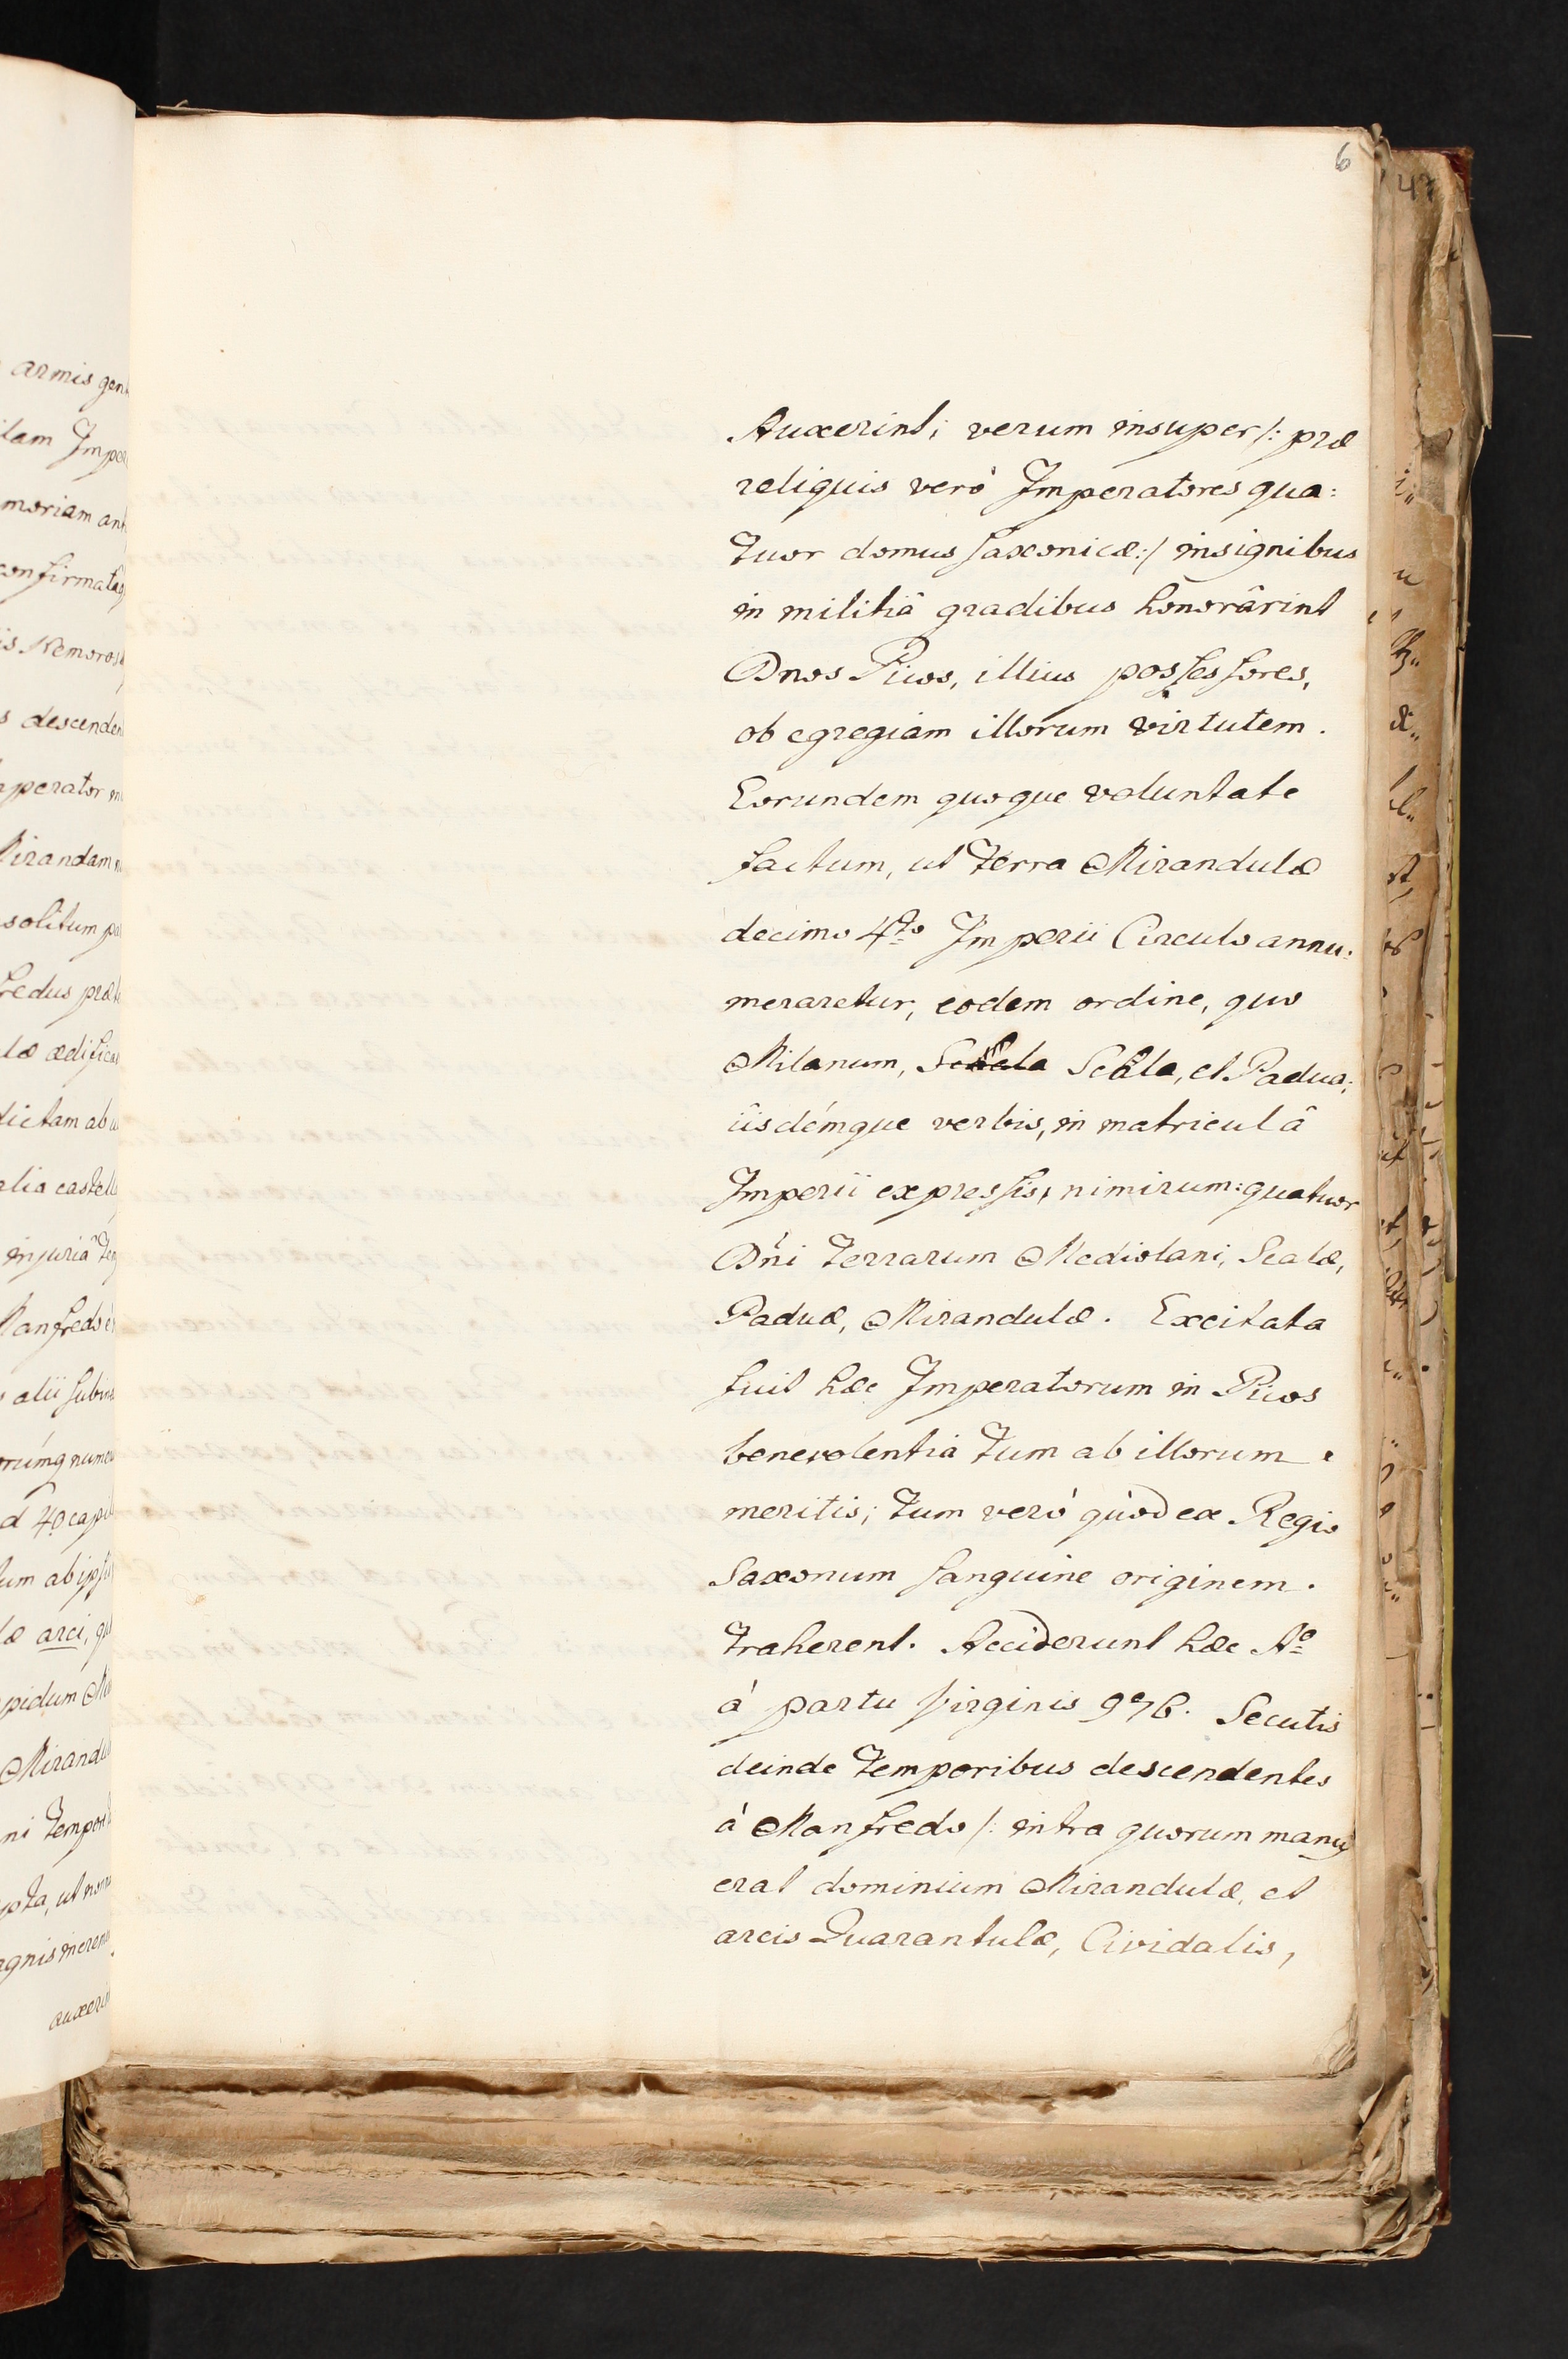 armis gen
itam Impe
moriam an
confirmatas
is Nemoros
s descenden
mperator in
Mirandam
solitum pa
fredus præ
læ ædifica
dictam ab
alia castell
injuriâ
Manfredo
alii
orúmq nume
d 40 capi
um ab ips
læ arci, qu
pidum
Mirand
ni tempor
pta, ut non
agnis
auxeri
6
47
Auxerint; verum insuper /: præ
reliquis verò Imperatores qua:
tuor domus saxonicæ:/ insignibus
in militiâ gradibus honorârint
Dnos Picos, illius possessores,
ob egregiam illorum virtutem.
Eorundem quoque voluntate
factum, ut terra Mirandulæ
decimo 4to Imperii Circulo annu:
meraretur, eodem ordine, quo
Milanum, Scala, et Padua;
iisdémque verbis, in matriculâ
Imperii expressis, nimirum: quatuor
Dni terrarum Mediolani, Scalæ,
Paduæ, Mirandulæ. Excitata
fuit hæc Imperatorum in Picos
benevolentia tum ab illorum
meritis; tum verò quòd ex Regio
Saxonum sanguine originem.
traherent. Acciderunt hæc Ao
à partu Virginis 976. Secutis
deinde temporibus descendentes
à Manfredo /: intra quorum manus
erat dominium Mirandulæ, et
arcis Quarantulæ, Cividalis,